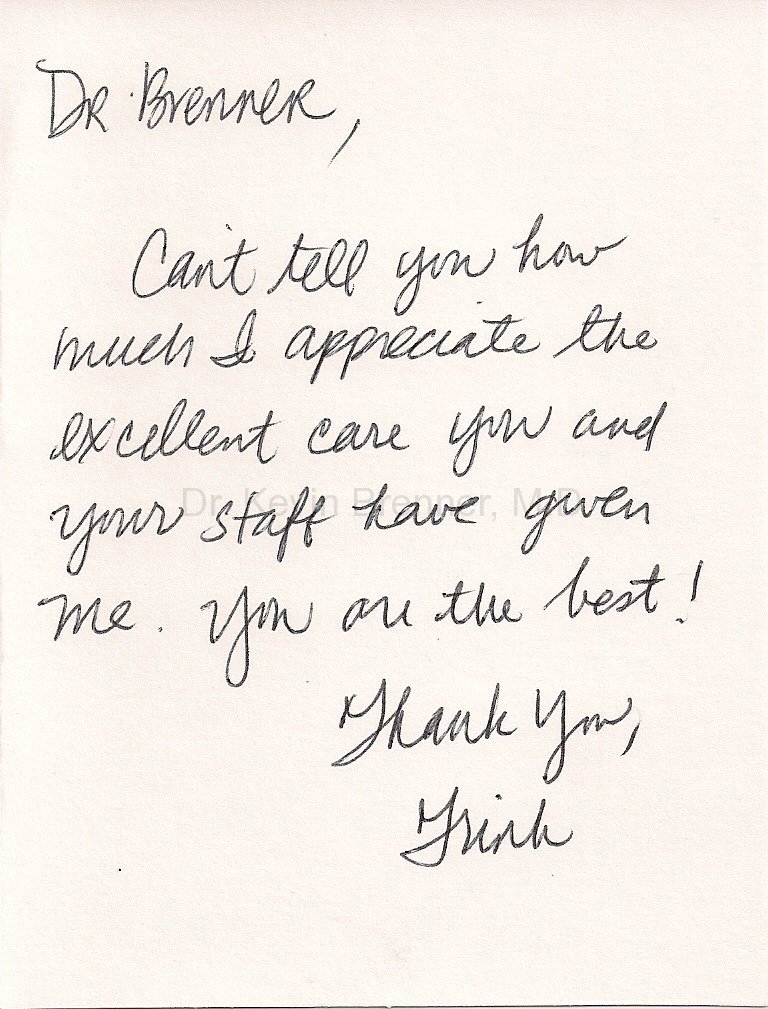 Dr. Brenner,
Can't tell you how
much I appreciate the
excellent care you and
Dr. Kevin Brenner, M.D.
your staff have given
me. You are the best!
Thank You,